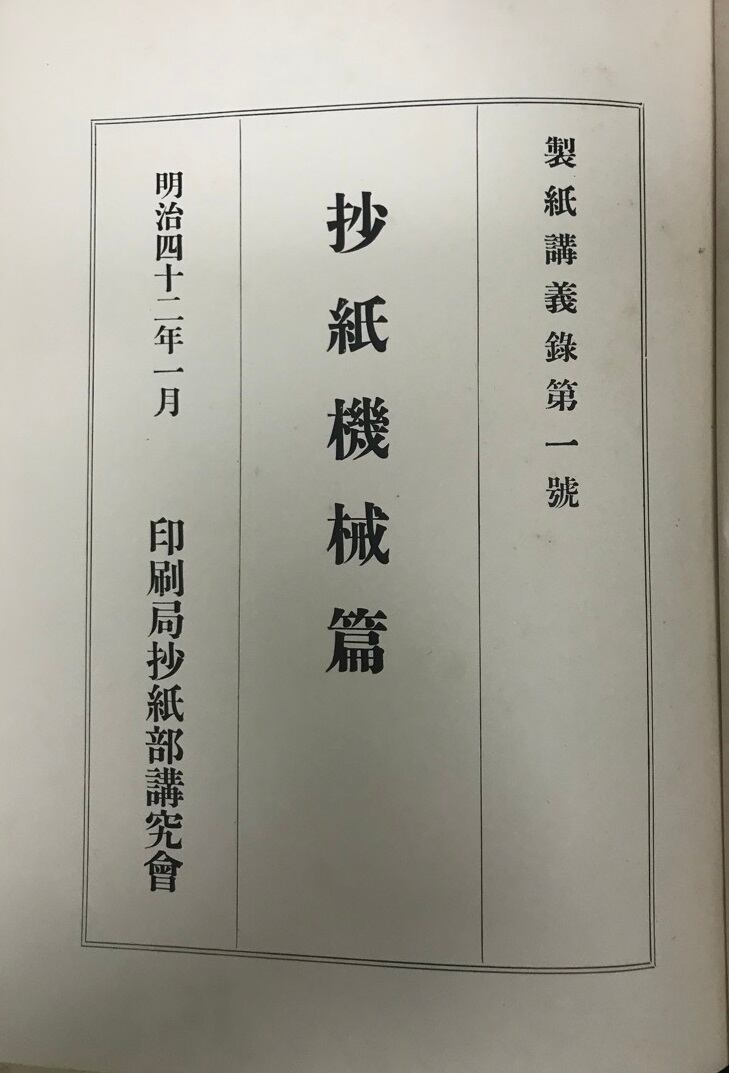 製紙講義錄第一號
抄紙機械篇
明治四十二年一月
印刷局抄紙部講究會